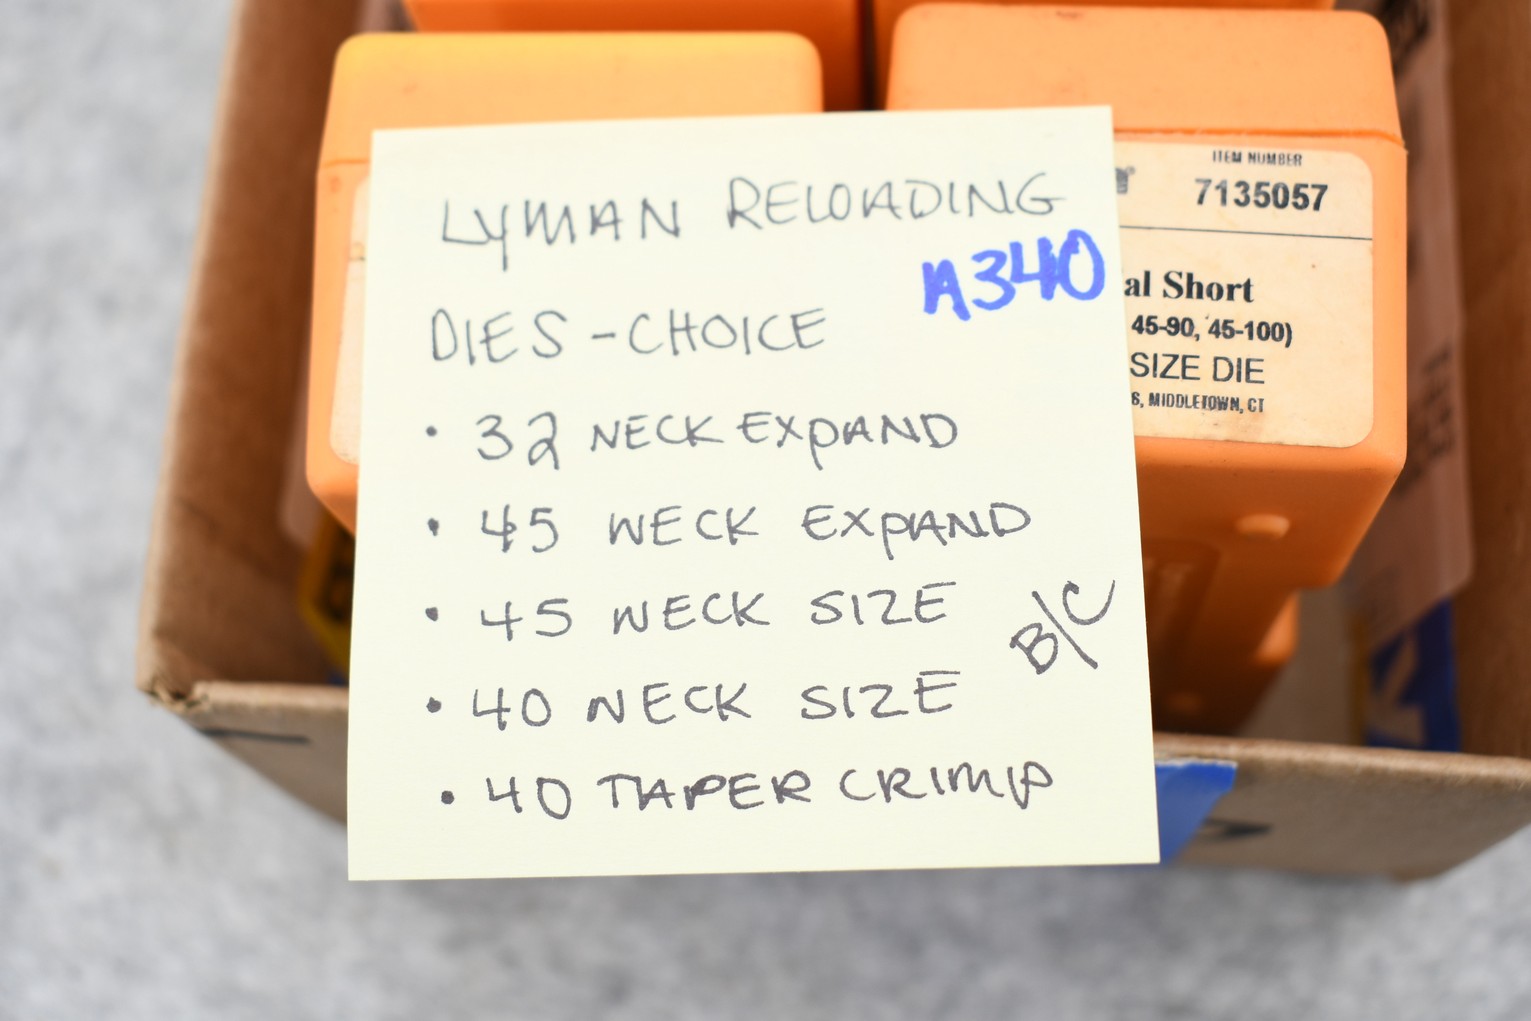 LYMAN RELOADING
A340
DIES - CHOICE
• 32 NECK EXPAND
• 45 NECK EXPAND
• 45 NECK SIZE
B/C
• 40 NECK SIZE
• 40 TAPER CRIMP
ITEM NUMBER
7135057
al Short
45-90, 45-100)
SIZE DIE
6, MIDDLETOWN, CT